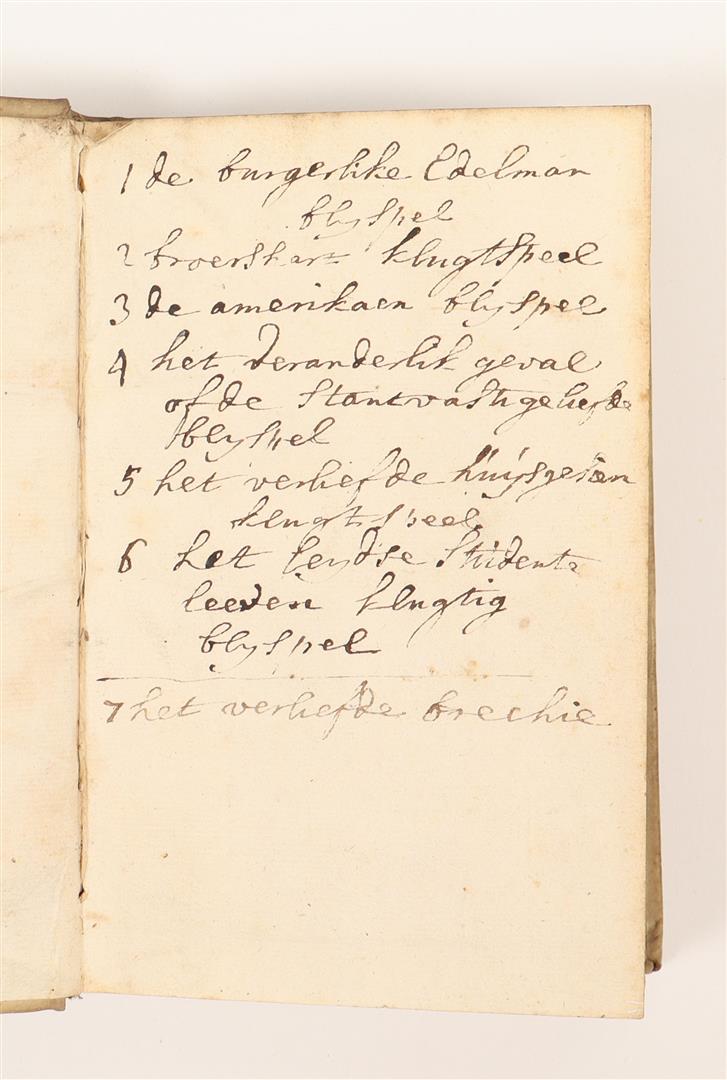 1 de burgerlike Edelman
blyspel
2 broershart klugtspeel
3 de amerikaen blyspel
4 het veranderlik geval
of de stantvastige liefde
blyspel
5 het verliefde huysgesin
klugt speel
6 het leydse studente
leeven klugtig
blyspel
7 het verliefde brechie